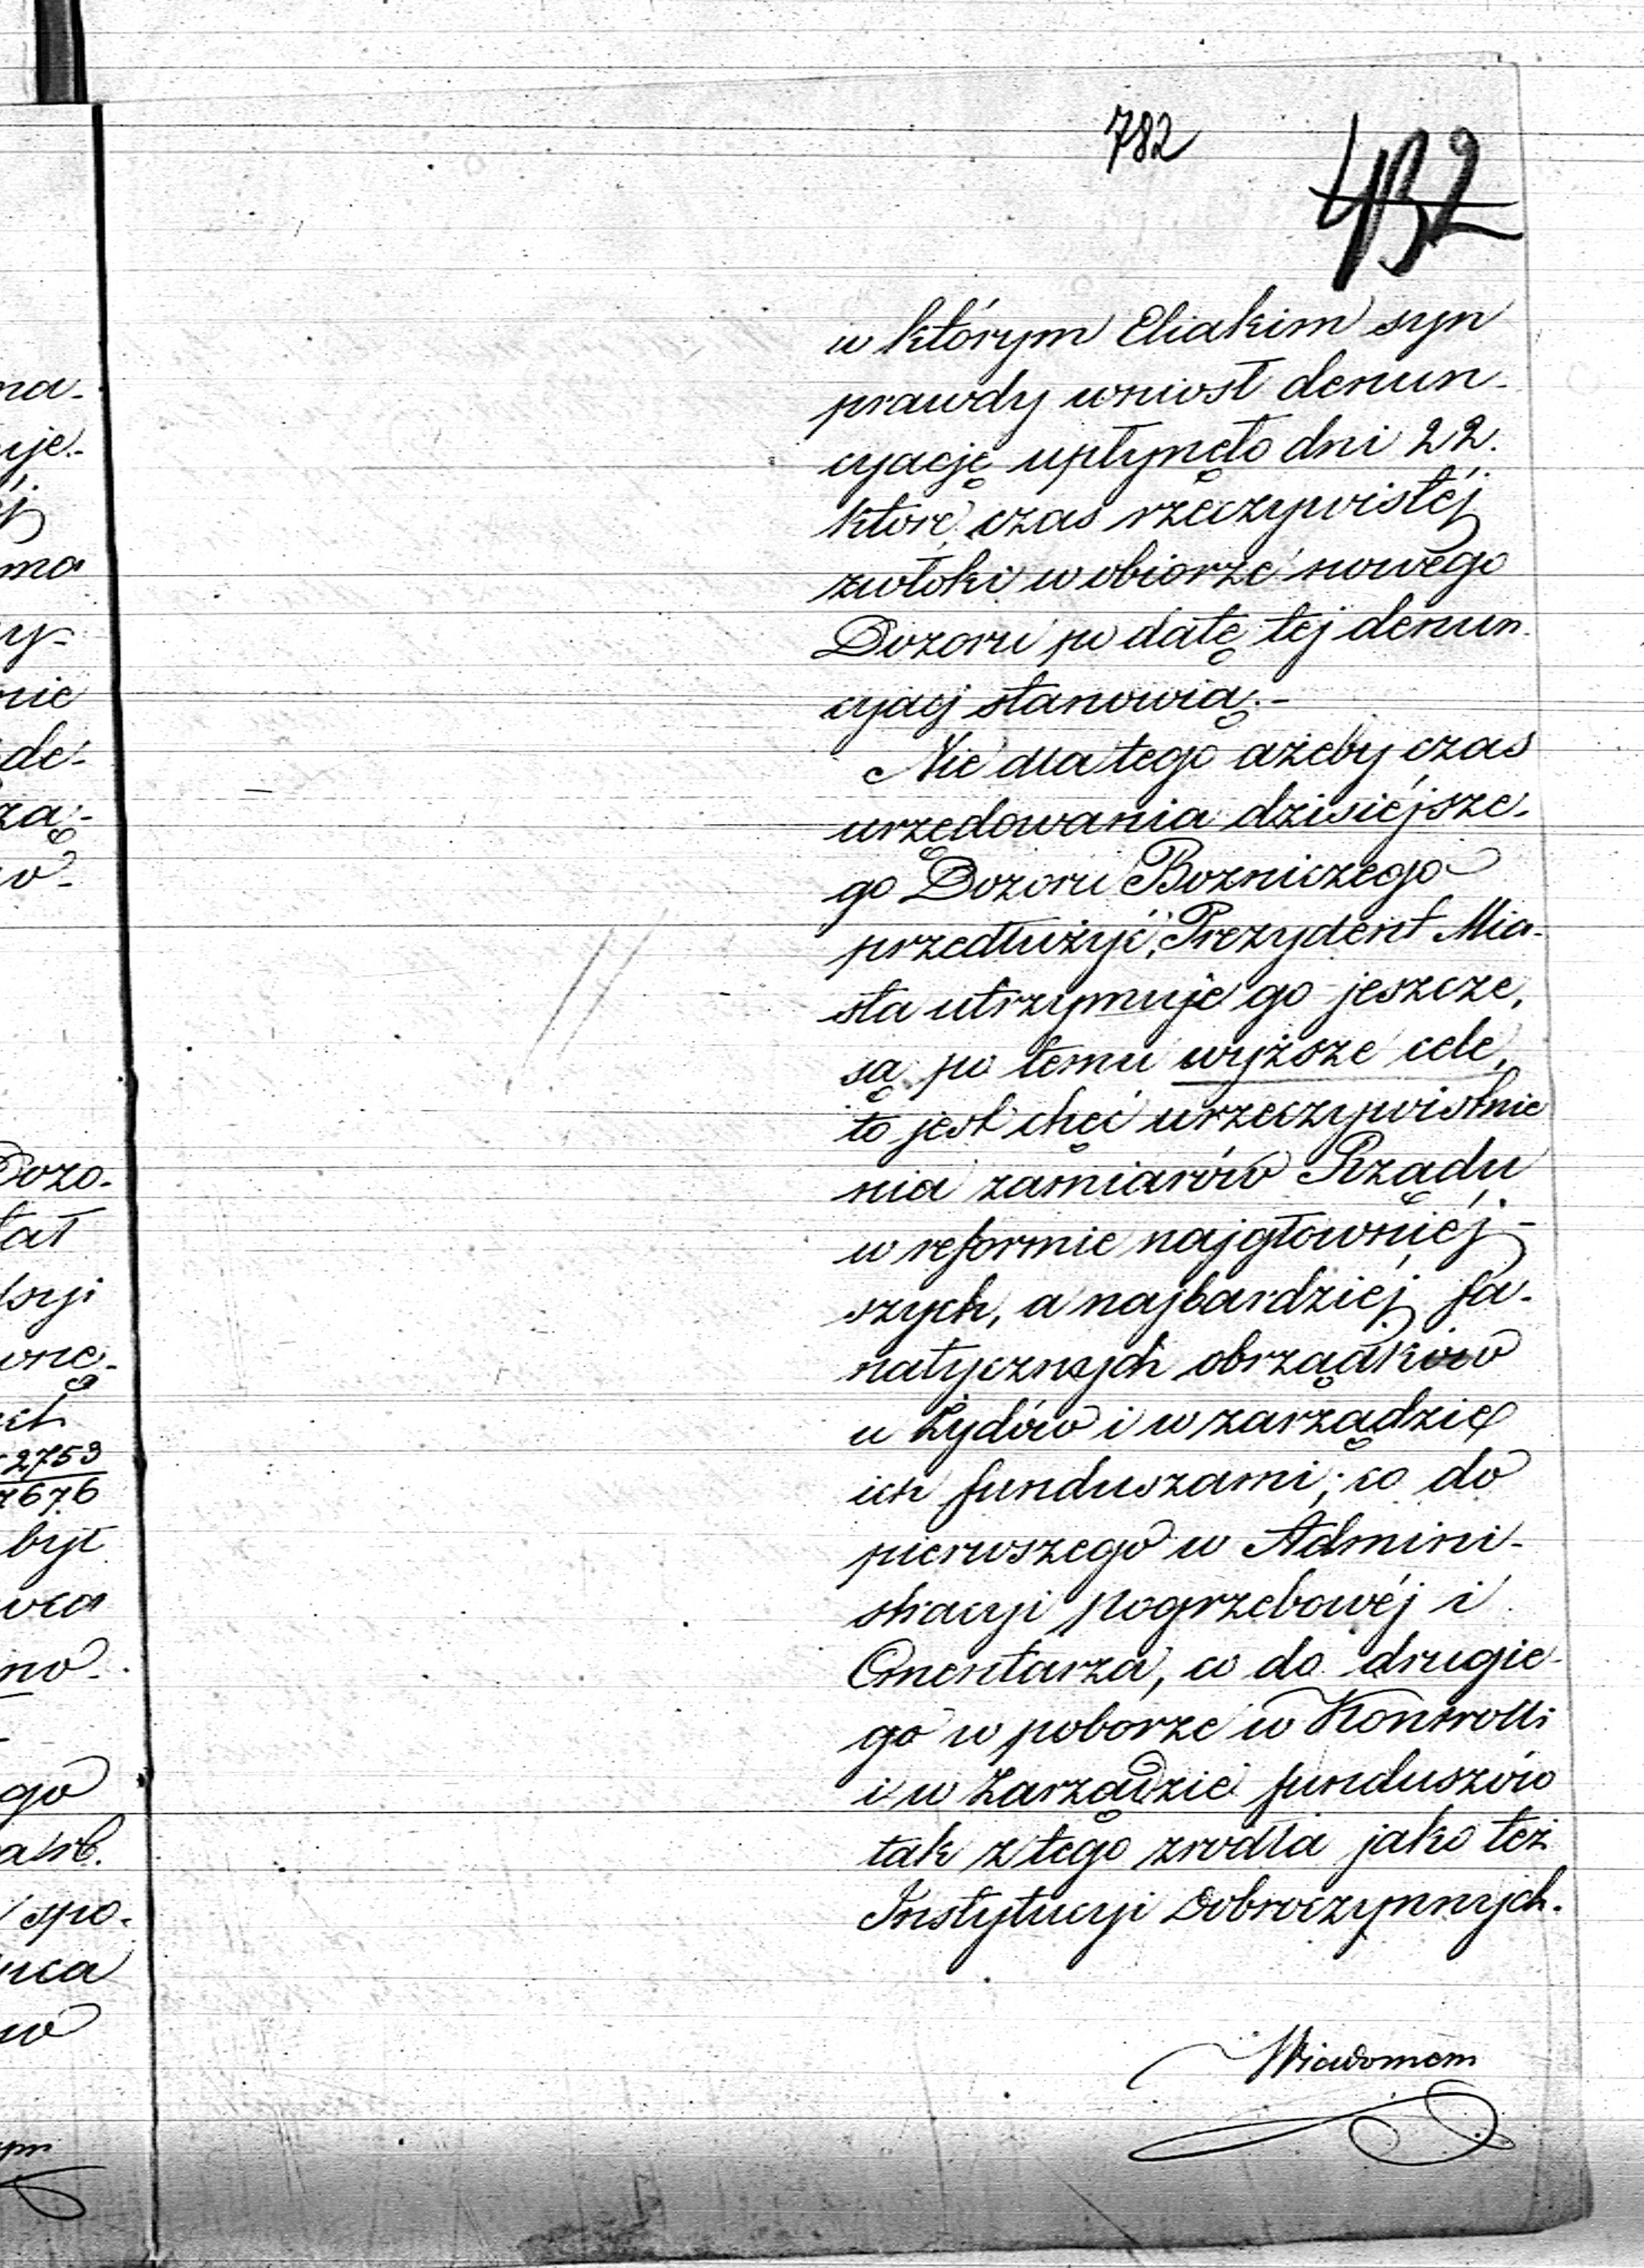 782
432
w którym Eliakim syn
prawdy wniosł denun-
cyacje upłynęło dni 22.
które czas rzeczywistéj
zwłoki w obiorze nowego
Dozoru po datę tej denun-
cyacj stanowią.-
Nie dla tego ażeby czas
urzędowania dzisiéjsze-
go Dozoru Bozniczego
przedłużyć, Prezydent Mia-
sta utrzymuje go jeszcze,
są po temu wyższe cele,
to jest chęć urzeczywistnie
nia zamiarów Rządu
w reformie najgłowniéj-
szych, a najbardziéj fa-
natycznych obrządków
u Żydów i w zarządzie
ich funduszami; co do
pierwszego w Admini-
stracyi pogrzebowéj i
Cmentarza, co do drugie-
go w poborze w Kontrolli
i w Zarządzie funduszów
tak z tego zrodła jako też
Instytucyi Dobroczynnych.
Wiadomem
na-
uje-
éj
ma
y-
nie
de-
żą-
o-
Dozo-
tał
syi
wne-
ch
2753
7676
był
wca
no-
go
a/rb.
spo-
nca
wo
ym